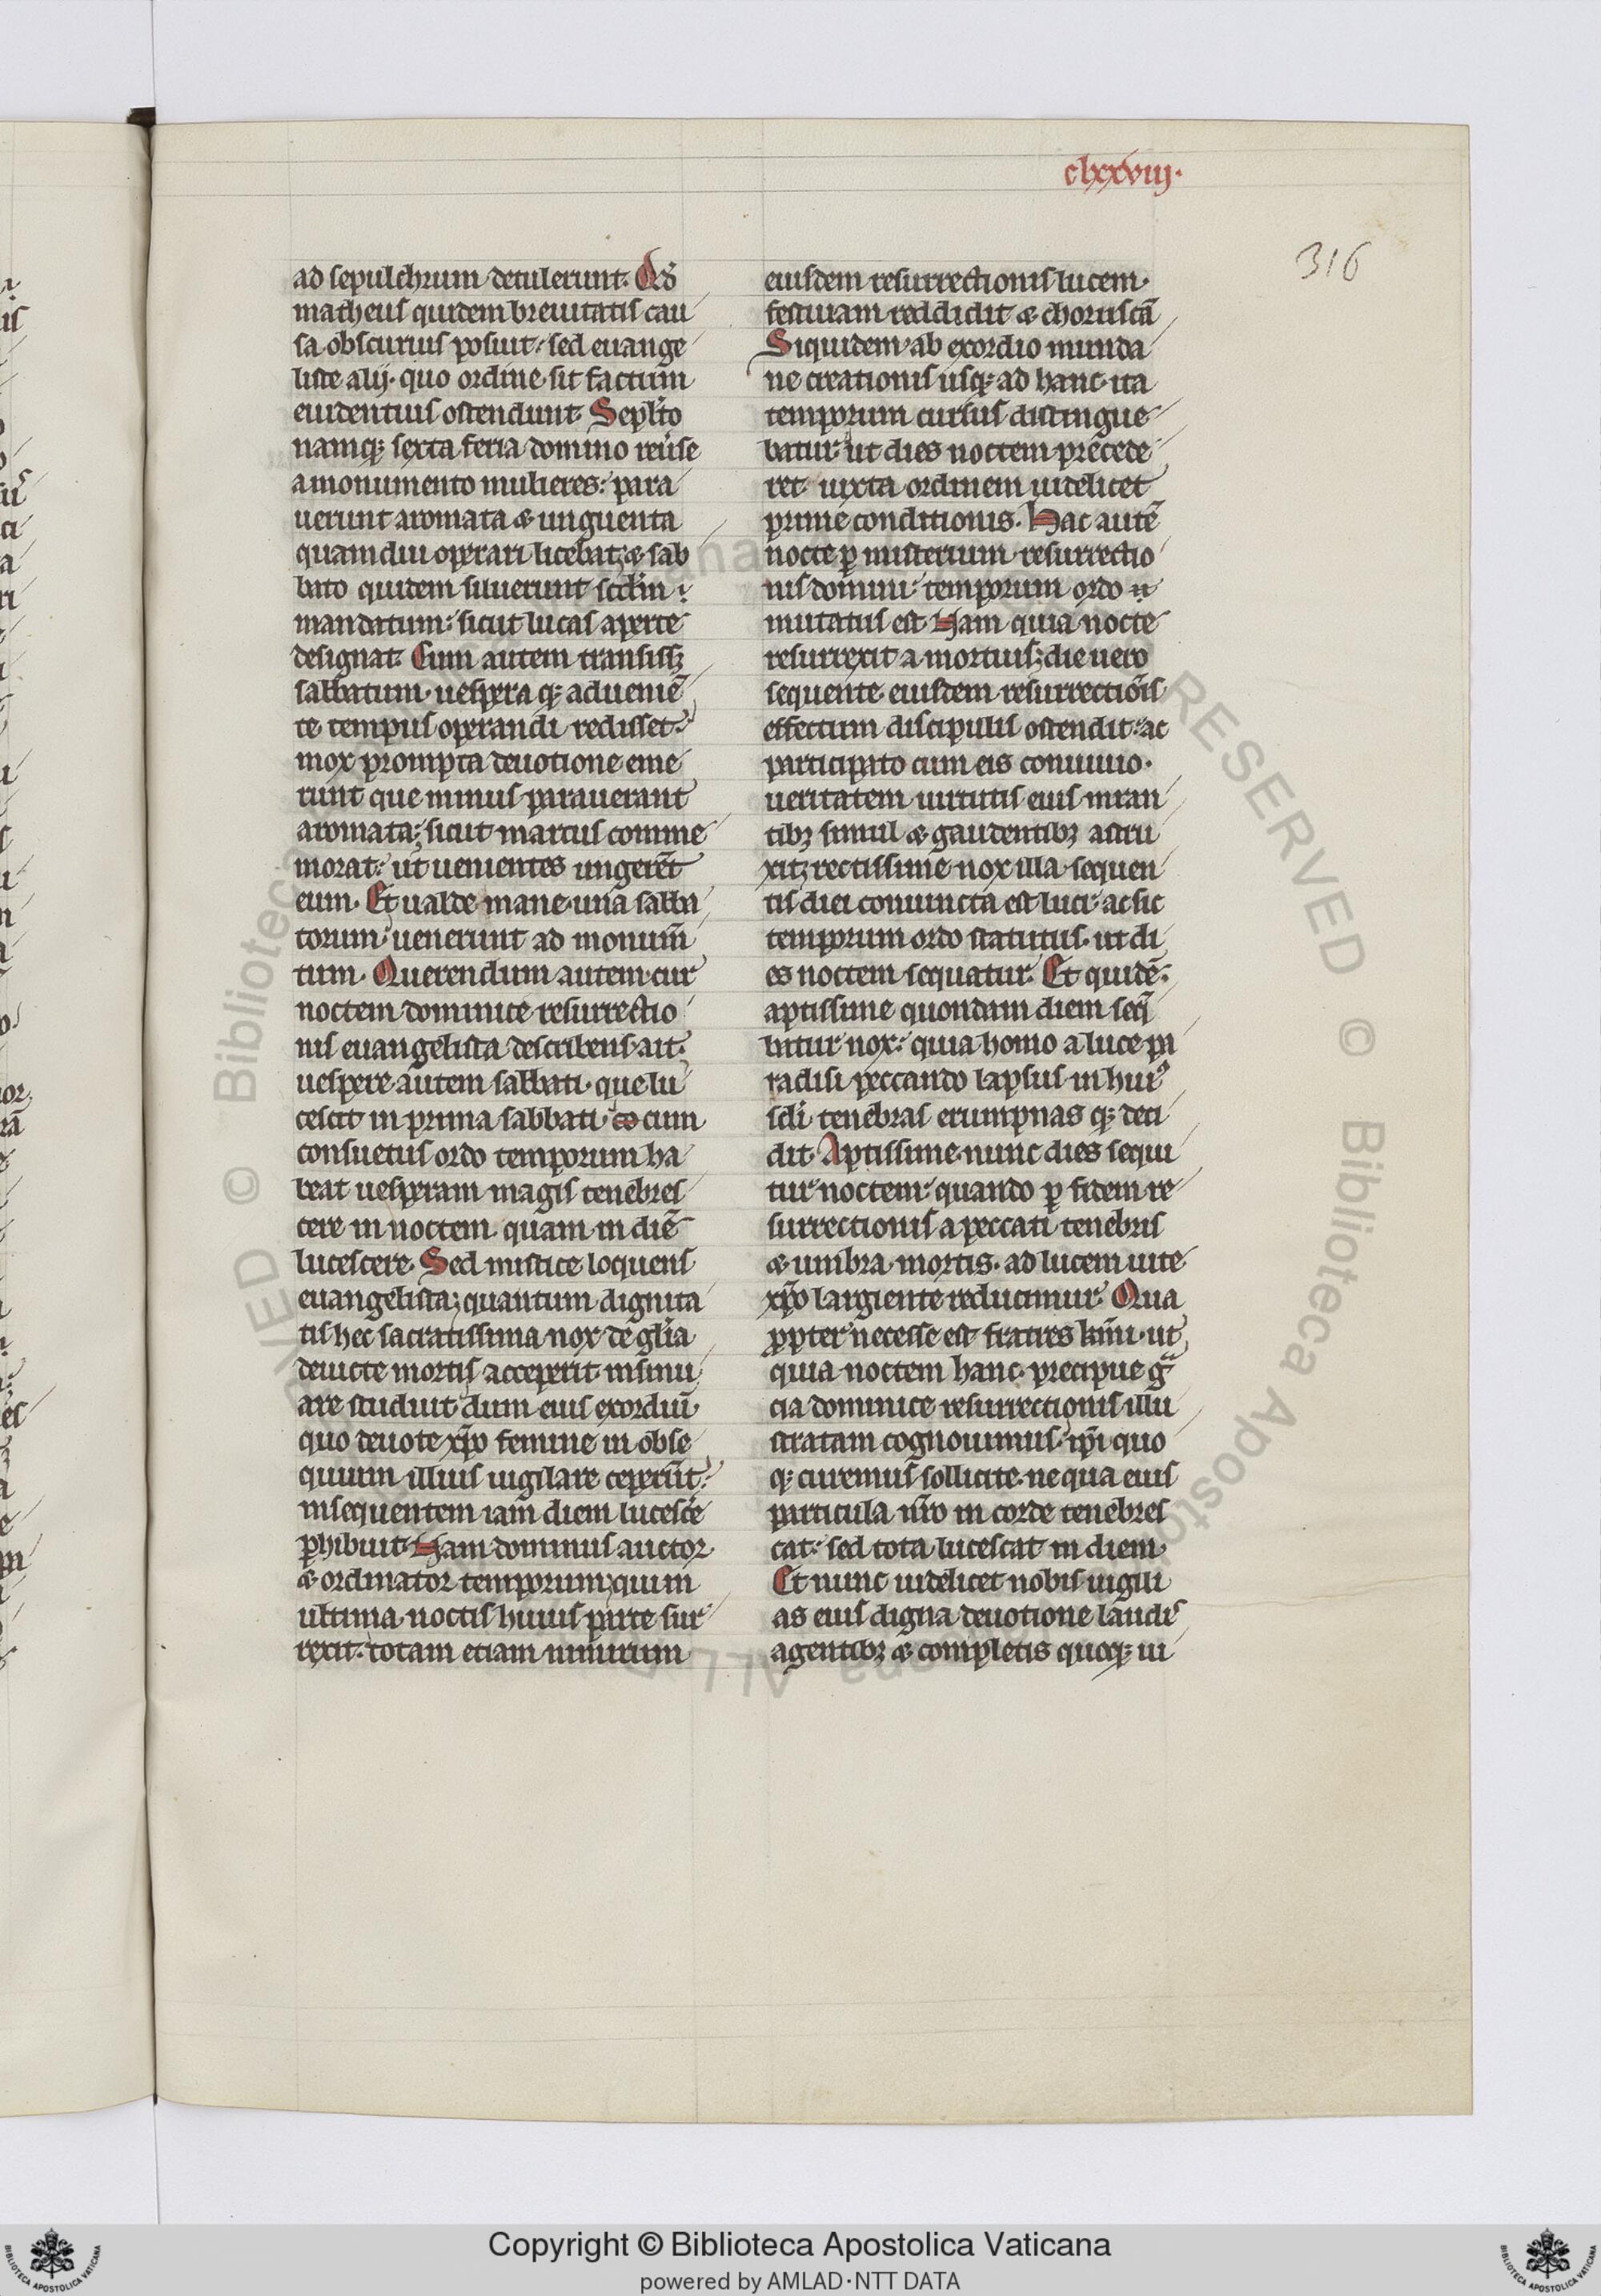 clxxviij.
316
ad sepulchrum detulerunt. Qđ
matheus quidem breuitatis cau
sa obscurius posuit, sed euange
liste alij. quo ordine sit factum
euidentius ostendunt. Sepl̄to
namq; sexta feria domino reūse
a monumento mulieres: para
uerunt aromata & unguenta
quamdiu operari licebat; & sab
bato quidem siluerunt scd̄m
mandatum: sicut lucas aperte
designat. Cum autem transiss;
sabbatum. uespera q; adueniē
te tempus operandi redisset:
mox prompta deuotione eme
runt que minus parauerant
aromata; sicut marcus comme
morat: ut uenientes ungerēt
eum. Et ualde mane una sabba
torum uenerunt ad monum̄
tum. Querendum autem cur
noctem dominice resurrectio
nis euangelista describens ait:
uespere autem sabbati. que lu
cescit in prima sabbati. cum
consuetus ordo temporum ha
beat uesperam magis tenebres
cere in noctem quam in diē
lucescere. Sed mistice loquens
euangelista; quantum dignita
tis hec sacratissima nox de gl̄ia
deuicte mortis acceperit insinu
are studuit dum eius exordiū
quo deuote xp̄o femine in obse
quium illius uigilare ceperūt:
insequentem iam diem lucesc̄e
phibuit. Nam dominus auctor
& ordinator temporum; qui in
ultima noctis huius parte sur
rexit: totam etiam nimirum
eiusdem resurrectionis lucem.
festiuam reddidit & choruscā
Siquidem ab exordio munda
ne creationis usq; ad hanc ita
temporum cursus distingue
batur: ut dies noctem precede
ret. iuxta ordinem uidelicet
prime conditionis. Hac autē
nocte p misterium resurrectio
nis domini: temporum ordo
mutatus est. Nam quia nocte
resurrexit a mortuis; die uero
sequente eiusdem resurrectiōis
effectum discipulis ostendit: ac
participato cum eis conuiuio.
ueritatem uirtutis eius miran
tib; simul & gaudentib; astru
xit; rectissime nox illa sequen
tis diei coniuncta est luci: ac sic
temporum ordo statutus. ut di
es noctem sequatur. Et quidē
aptissime quondam diem seq̄
batur nox: quia homo a luce pa
radisi peccando lapsus in hui9
scl̄i tenebras erumpnas q; deci
dit. Aptissime nunc dies sequi
tur noctem: quando p fidem re
surrectionis a peccati tenebris
& umbra mortis. ad lucem uite
xp̄o largiente reducimur. Qua
ppter necesse est fratres km̄i. ut
quia noctem hanc precipue gr̄a
cia dominice resurrectionis illu
stratam cognouimus. ip̄i quo
q; curemus sollicite. ne qua eius
particula nr̄o in corde tenebres
cat: sed tota lucescat in diem.
Et nunc uidelicet nobis uigili
as eius digna deuotione laudis
agentib; & completis quoq; ui
Copyright © Biblioteca Apostolica Vaticana
powered by AMLAD·NTT DATA